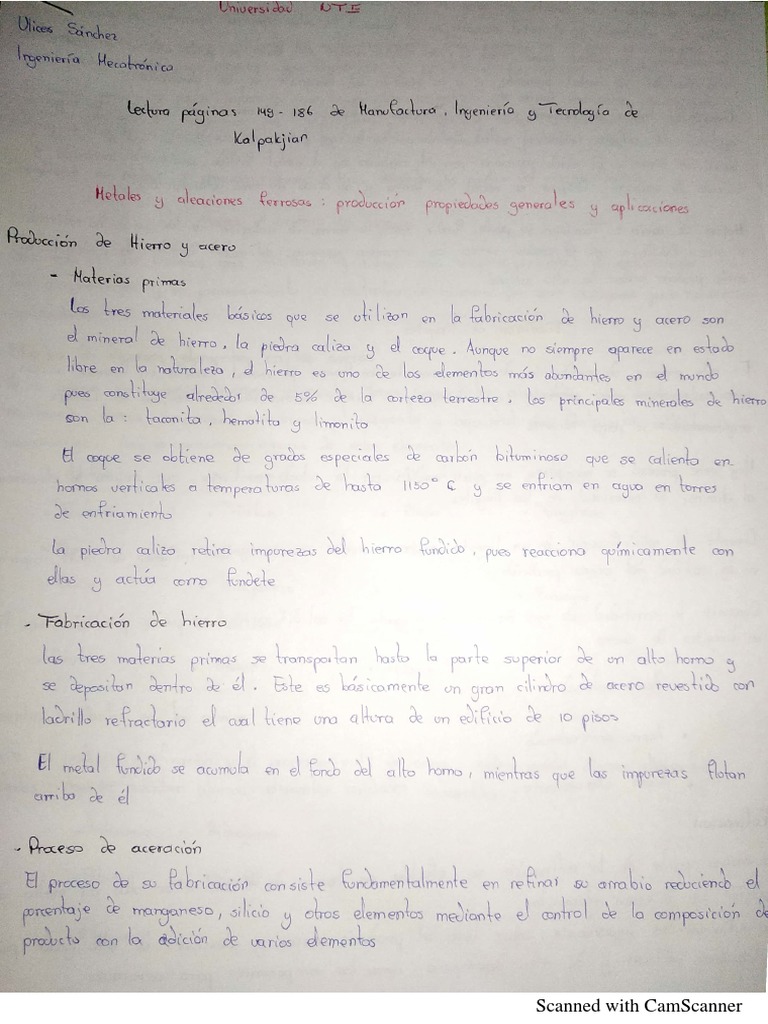 Universidad UTE
Ulices Sánchez
Ingeniería Mecatrónica
Lectura páginas 149-186 de Manufactura, Ingeniería y Tecnología de
Kalpakjian
Metales y aleaciones ferrosas: producción propiedades generales y aplicaciones
Producción de Hierro y acero
- Materias primas
Los tres materiales básicos que se utilizan en la fabricación de hierro y acero son
el mineral de hierro, la piedra caliza y el coque. Aunque no siempre aparece en estado
libre en la naturaleza, el hierro es uno de los elementos más abundantes en el mundo
pues constituye alrededor de 5% de la corteza terrestre. Los principales minerales de hierro
son la: taconita, hematita y limonita
El coque se obtiene de grados especiales de carbón bituminoso que se calienta en
hornos verticales a temperaturas de hasta 1150° C y se enfrian en agua en torres
de enfriamiento
La piedra caliza retira impurezas del hierro fundido, pues reacciona químicamente con
ellas y actúa como fundete
- Fabricación de hierro
Las tres materias primas se transportan hasta la parte superior de un alto horno y
se depositan dentro de él. Este es básicamente un gran cilindro de acero revestido con
ladrillo refractario el cual tiene una altura de un edificio de 10 pisos
El metal fundido se acumula en el fondo del alto horno, mientras que las impurezas flotan
arriba de él
- Proceso de aceración
El proceso de su fabricación consiste fundamentalmente en refinar su arrabio reduciendo el
porcentaje de manganeso, silicio y otros elementos mediante el control de la composición de
producto con la adición de varios elementos
Scanned with CamScanner